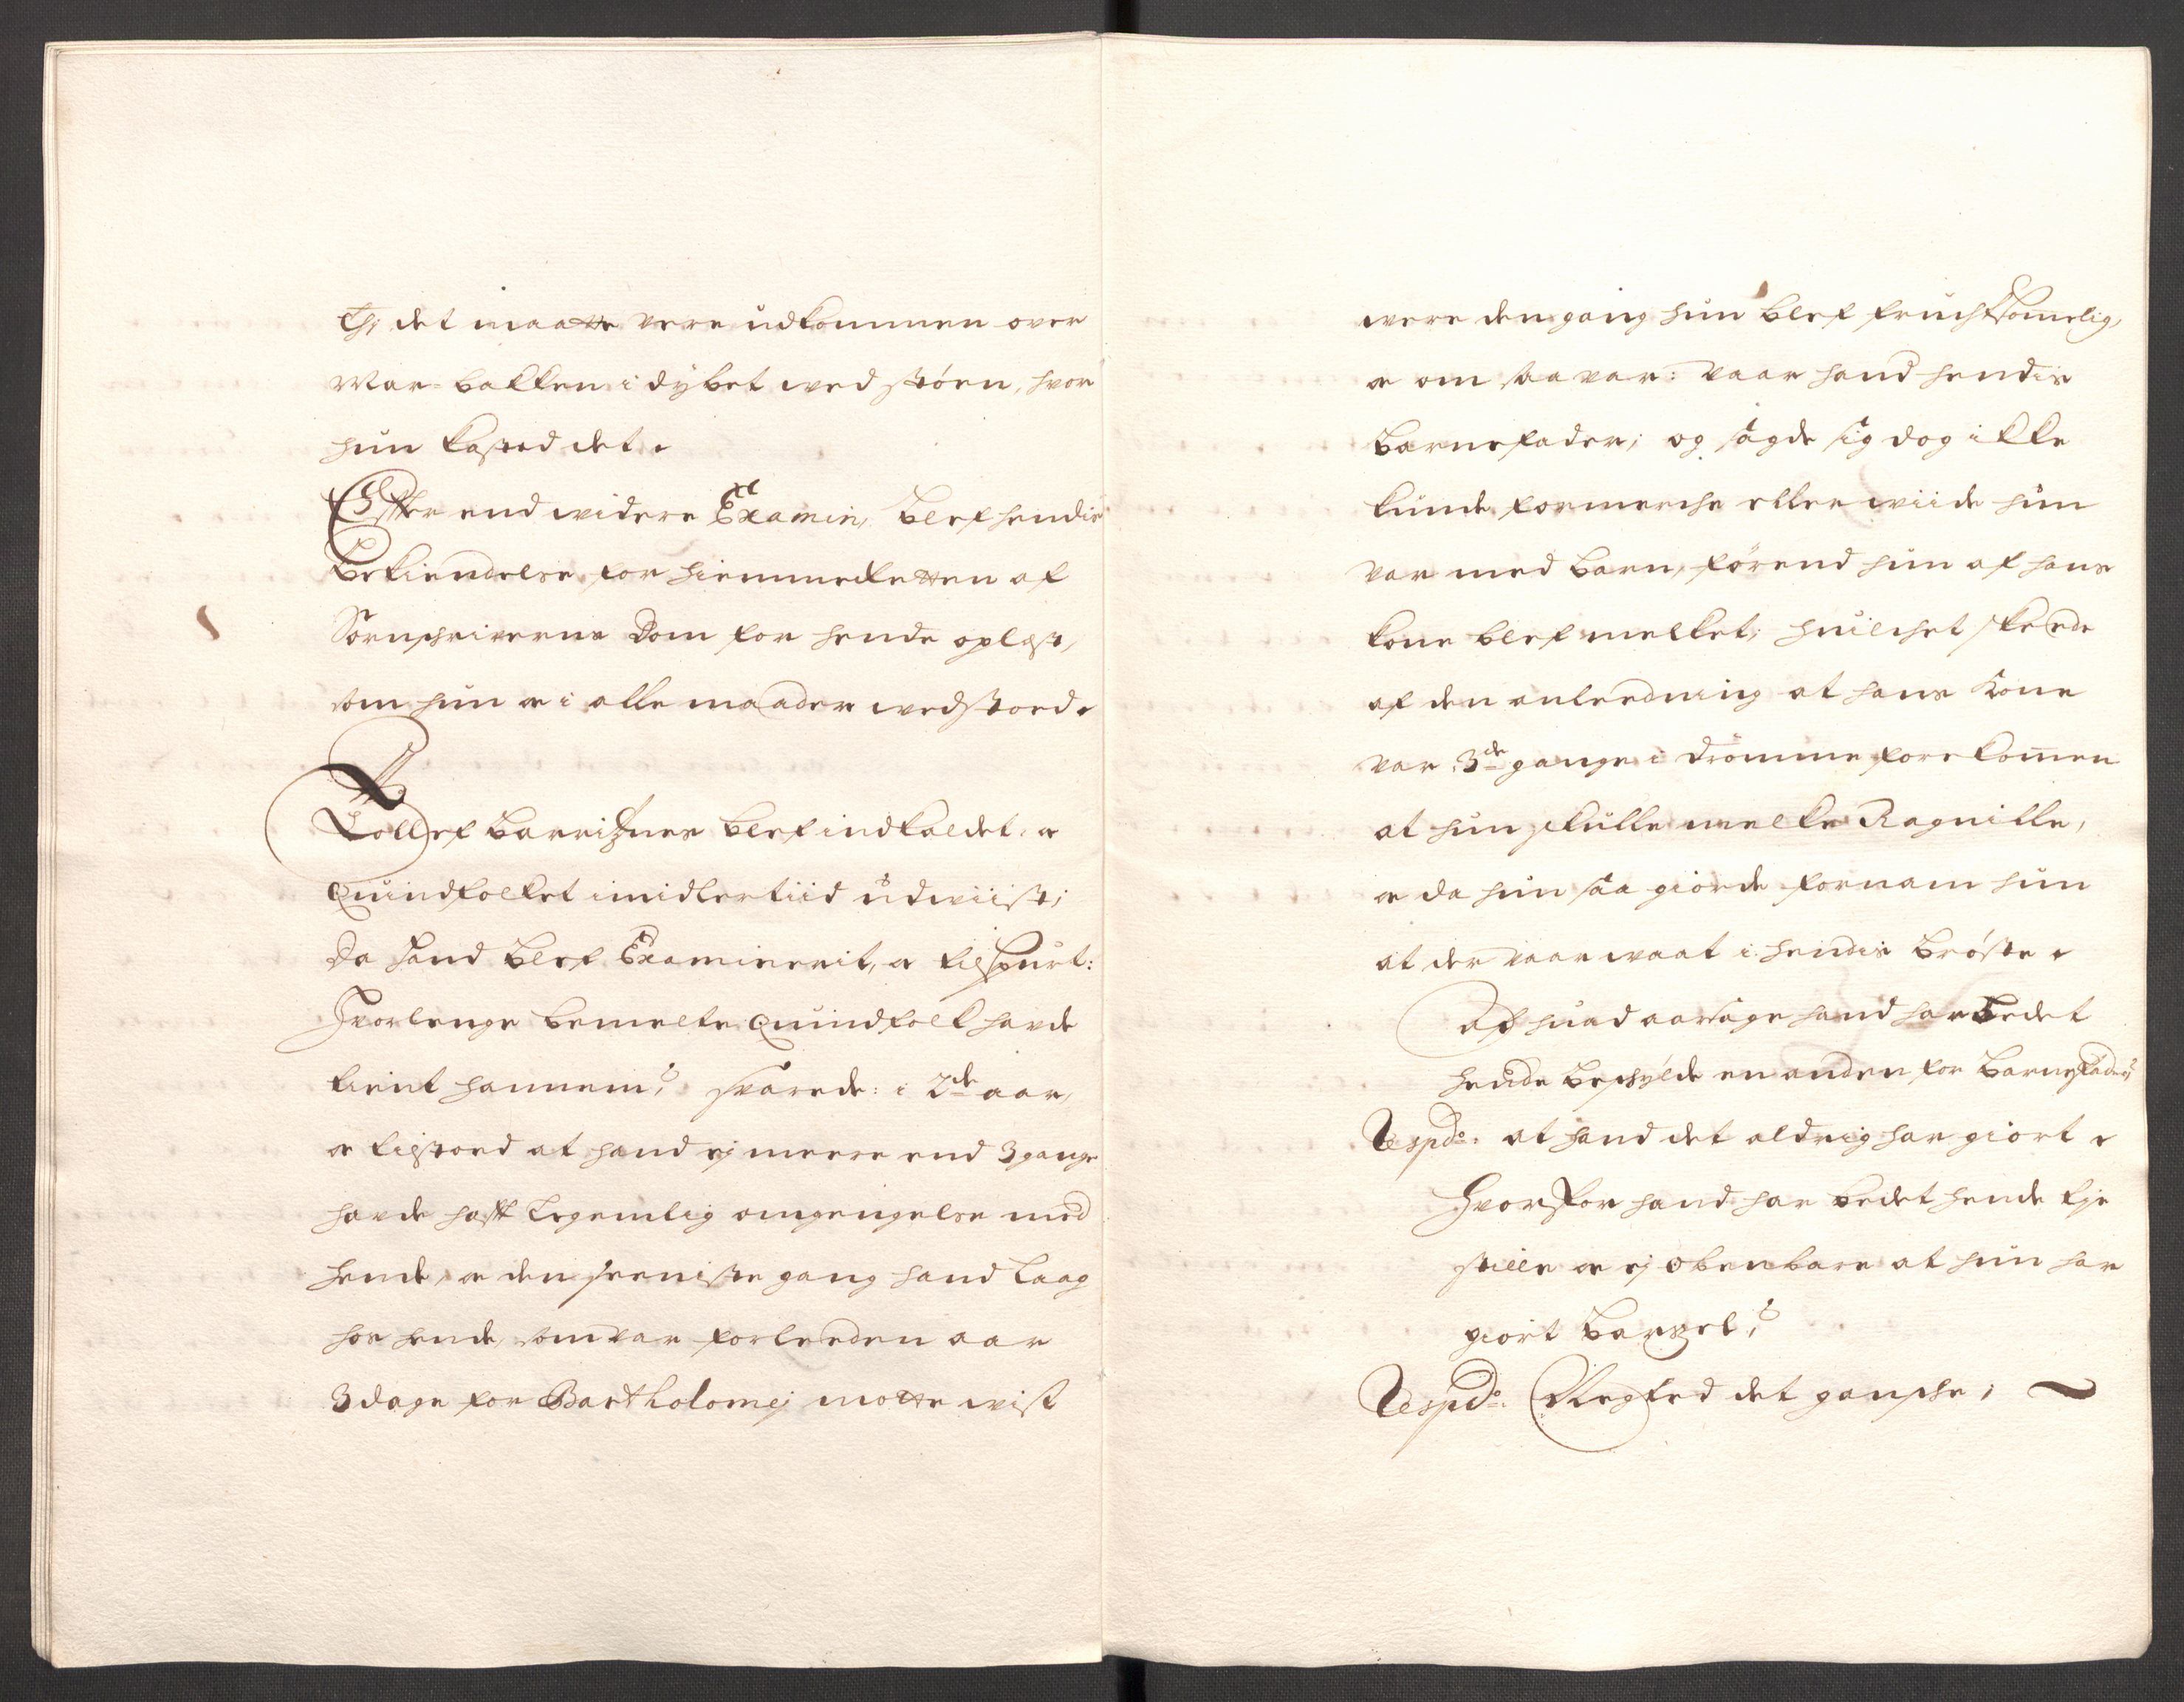 Thj det maatte vere udkommen over
Mar-bakken i dybet wed støen, hvor
hun kasted det.
Effter end widere Examin, blef hendis
bekiendelse for hiemmeretten af
Sornschriverns dom for hende oplæst,
som hun og i alle maader wedstoed.
Tollef barritznes blef indkaldet, og
Quindfolket imidlertiid udwiist;
da hand blef Examinerit, og tilspurt:
Hvorlenge bemelte Quindfolk havde
tient hannem? svarede: i 2de aar,
og tilstoed at hand ej meere end 3 gange
havde hafft legemlig omgengelse med
hende, og den seeniste gang hand laag
hos hende, som var forleeden aar
3 dage for Bartholomej motte wist
were den gang hun blef fruchtsommelig,
og om saa var: vaar hand hendis
barnefader; og sagde sig dog ikke
kunde formerche eller wiide hun
var med barn, førend hun af hans
kone blef melket; huilchet skeede
af den anleedning at hans Kone
var 3de gange i drømme forekommen
at hun skulle melke Ragnille,
og da hun saa giorde fornam hun
at der vaar waat i hendis brøste.
Af huad aarsage hand har bedet
hende beschylde en anden for barnefader?
Respdo: at hand det aldrig har giort.
Hvorfor hand har bedet hende tje
stille og ej obenbare at hun har
giort barsel?
Respdo: Negted det gansche;